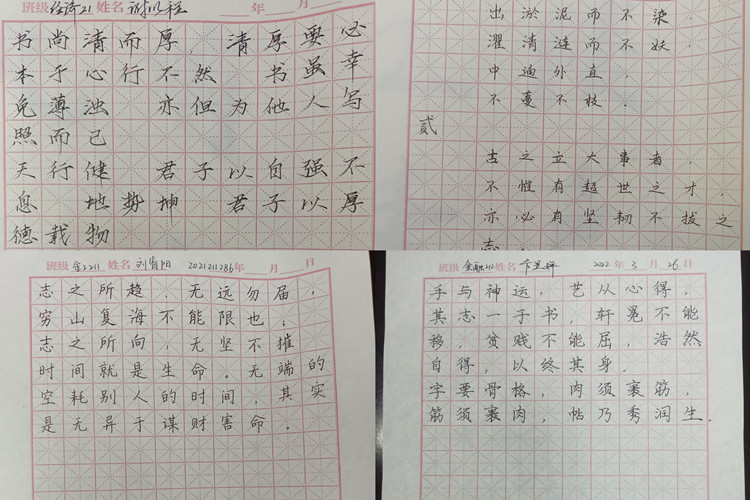 班级 经济21 姓名 年 月
书尚清而厚，清厚要必
本于心行不然 书虽幸
免薄浊 亦但为他人写
照而已
天行健 君子以自强不
息 地势坤 君子以厚
德载物
出淤泥而不染．
濯清涟而不妖．
中通外直．
不蔓不枝．
贰
古之立大事者，
不惟有超世之才，
亦必有坚韧不拔之
志．
班级 金2211 姓名 2021211286 年 月 日
志之所趋，无远勿届，
穷山复海不能限也；
志之所向，无坚不摧
时间就是生命。无端的
空耗别人的时间，其实
是无异于谋财害命．
班级 姓名 2022 年 3 月 26 日
手与神运，艺从心得，
其志一于书，轩冕不能
移，贫贱不能屈，浩然
自得，以终其身．
字要骨格，肉须裹筋，
筋须裹肉，帖乃秀润生．